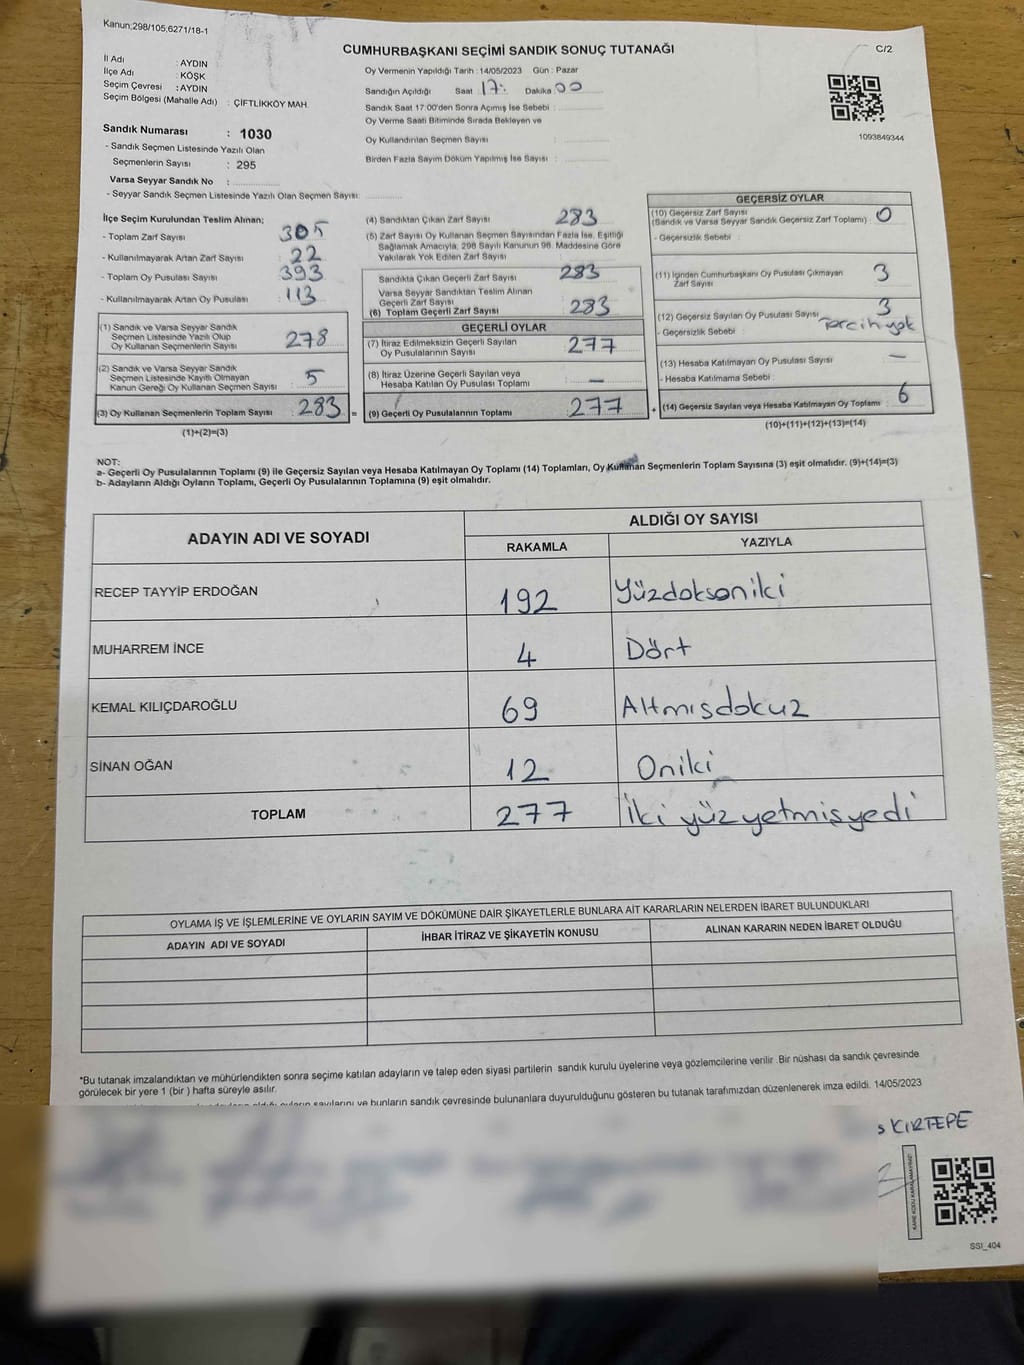 Kanun;298/105,6271/18-1
CUMHURBAŞKANI SEÇİMİ SANDIK SONUÇ TUTANAĞI
C/2
İl Adı : AYDIN
İlçe Adı : KÖŞK
Seçim Çevresi : AYDIN
Seçim Bölgesi (Mahalle Adı) : ÇİFTLİKKÖY MAH.
Oy Vermenin Yapıldığı Tarih : 14/05/2023 Gün : Pazar
Sandığın Açıldığı Saat 17: Dakika 00
Sandık Saat 17:00'den Sonra Açımış İse Sebebi :
Oy Verme Saati Bitiminde Sırada Bekleyen ve
Oy Kullandırılan Seçmen Sayısı :
Birden Fazla Sayım Döküm Yapılmış İse Sayısı :
1093849344
Sandık Numarası : 1030
- Sandık Seçmen Listesinde Yazılı Olan
Seçmenlerin Sayısı : 295
Varsa Seyyar Sandık No :
- Seyyar Sandık Seçmen Listesinde Yazılı Olan Seçmen Sayısı:
İlçe Seçim Kurulundan Teslim Alınan;
- Toplam Zarf Sayısı : 305
- Kullanılmayarak Artan Zarf Sayısı : 22
- Toplam Oy Pusulası Sayısı : 393
- Kullanılmayarak Artan Oy Pusulası : 113
(1) Sandık ve Varsa Seyyar Sandık
Seçmen Listesinde Yazılı Olup
Oy Kullanan Seçmenlerin Sayısı : 278
(2) Sandık ve Varsa Seyyar Sandık
Seçmen Listesinde Kayıtlı Olmayan
Kanun Gereği Oy Kullanan Seçmen Sayısı : 5
(3) Oy Kullanan Seçmenlerin Toplam Sayısı : 283 =
(1)+(2)=(3)
(4) Sandıktan Çıkan Zarf Sayısı : 283
(5) Zarf Sayısı Oy Kullanan Seçmen Sayısından Fazla İse, Eşitliği
Sağlamak Amacıyla, 298 Sayılı Kanunun 98. Maddesine Göre
Yakılarak Yok Edilen Zarf Sayısı :
Sandıkta Çıkan Geçerli Zarf Sayısı : 283
Varsa Seyyar Sandıktan Teslim Alınan
Geçerli Zarf Sayısı :
(6) Toplam Geçerli Zarf Sayısı : 283
GEÇERLİ OYLAR
(7) İtiraz Edilmeksizin Geçerli Sayılan
Oy Pusulalarının Sayısı : 277
(8) İtiraz Üzerine Geçerli Sayılan veya
Hesaba Katılan Oy Pusulası Toplamı : —
(9) Geçerli Oy Pusulalarının Toplamı : 277 +
GEÇERSİZ OYLAR
(10) Geçersiz Zarf Sayısı
(Sandık ve Varsa Seyyar Sandık Geçersiz Zarf Toplamı) : 0
- Geçersizlik Sebebi :
(11) İçinden Cumhurbaşkanı Oy Pusulası Çıkmayan
Zarf Sayısı : 3
(12) Geçersiz Sayılan Oy Pusulası Sayısı : 3
- Geçersizlik Sebebi : Tercih yok
(13) Hesaba Katılmayan Oy Pusulası Sayısı : —
- Hesaba Katılmama Sebebi :
(14) Geçersiz Sayılan veya Hesaba Katılmayan Oy Toplamı : 6
(10)+(11)+(12)+(13)=(14)
NOT:
a- Geçerli Oy Pusulalarının Toplamı (9) ile Geçersiz Sayılan veya Hesaba Katılmayan Oy Toplamı (14) Toplamları, Oy Kullanan Seçmenlerin Toplam Sayısına (3) eşit olmalıdır. (9)+(14)=(3)
b- Adayların Aldığı Oyların Toplamı, Geçerli Oy Pusulalarının Toplamına (9) eşit olmalıdır.
ADAYIN ADI VE SOYADI
ALDIĞI OY SAYISI
RAKAMLA YAZIYLA
RECEP TAYYİP ERDOĞAN 192 Yüzdoksaniki
MUHARREM İNCE 4 Dört
KEMAL KILIÇDAROĞLU 69 Altmışdokuz
SİNAN OĞAN 12 Oniki
TOPLAM 277 İki yüz yetmişyedi
OYLAMA İŞ VE İŞLEMLERİNE VE OYLARIN SAYIM VE DÖKÜMÜNE DAİR ŞİKAYETLERLE BUNLARA AİT KARARLARIN NELERDEN İBARET BULUNDUKLARI
ADAYIN ADI VE SOYADI İHBAR İTİRAZ VE ŞİKAYETİN KONUSU ALINAN KARARIN NEDEN İBARET OLDUĞU
*Bu tutanak imzalandıktan ve mühürlendikten sonra seçime katılan adayların ve talep eden siyasi partilerin sandık kurulu üyelerine veya gözlemcilerine verilir .Bir nüshası da sandık çevresinde
görülecek bir yere 1 (bir ) hafta süreyle asılır.
aldığı oyların sayılarını ve bunların sandık çevresinde bulunanlara duyurulduğunu gösteren bu tutanak tarafımızdan düzenlenerek imza edildi. 14/05/2023
s KIRTEPE
KARE KODU KARALAMAYINIZ!
SSI_404